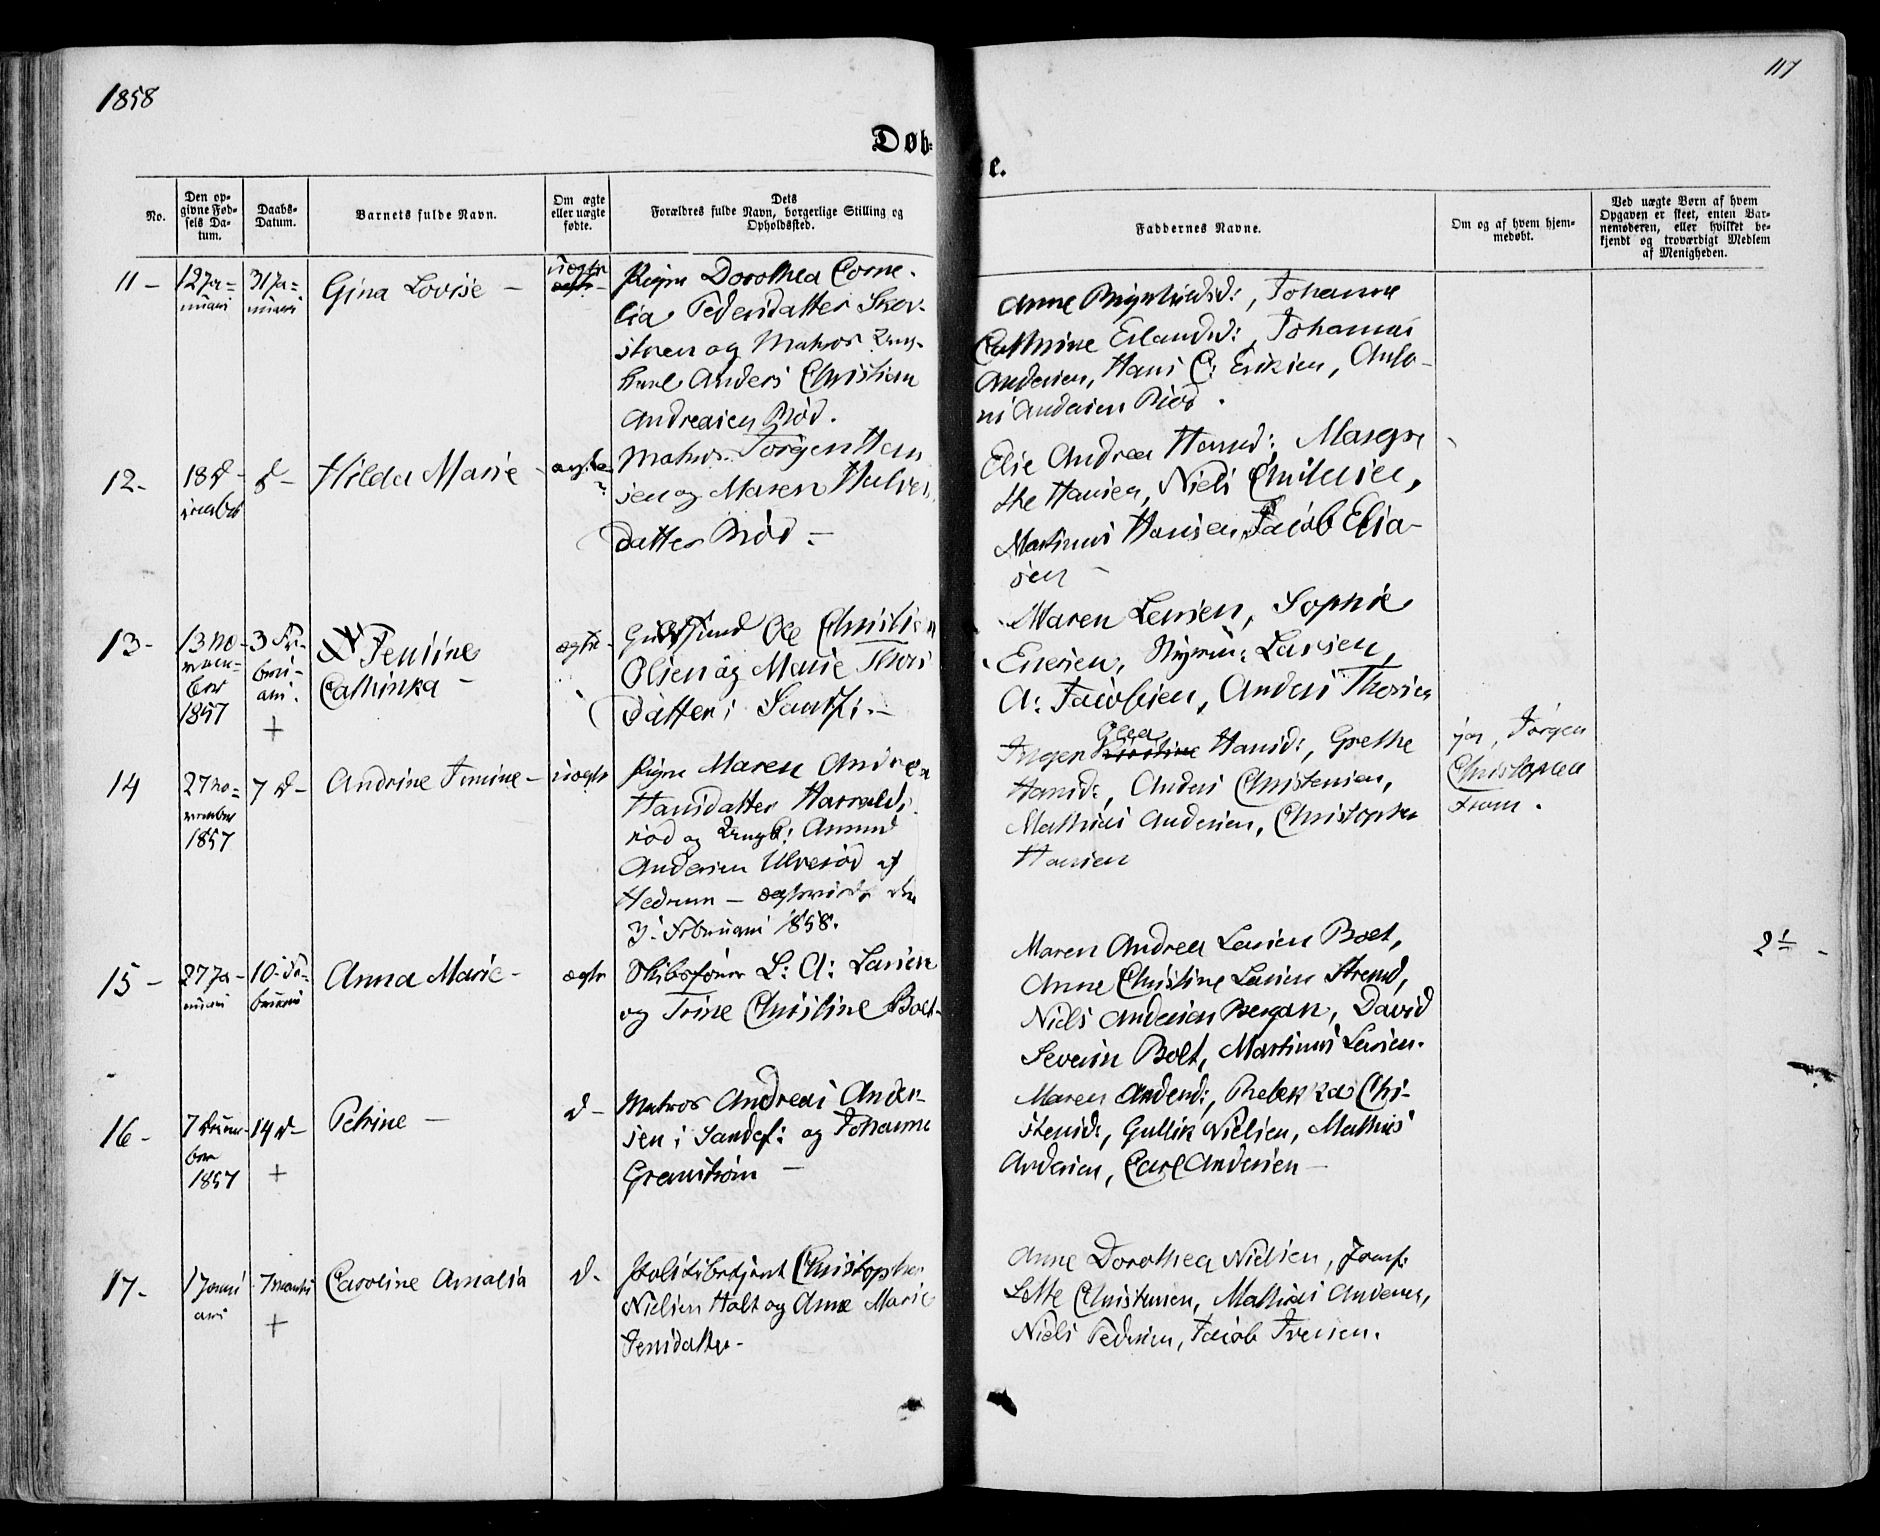 1858
117
Døb-
e.
No.
Den op-
givne Fød-
sels Da-
tum.
Daabs-
Datum.
Barnets fulde Navn.
Om ægte
eller uægte
fødte.
Dets
Forældres fulde Navn, borgerlige Stilling og
Opholdssted.
Faddernes Navne.
Om og af hvem hjem-
medøbt.
Ved uægte Børn af hvem
Opgaven er skeet, enten Bar-
nemoderen, eller hvilket be-
kjendt og troværdigt Medlem
af Menigheden.
11 -
12 Ja-
nuari
31 Ja-
nuari
Gina Lovise -
uægte
ægte
Pigen Dorothea Corne-
lia Pedersdatter
og Matros Ung-
karl Anders Christian
Andreasen Rød.
Anne , Johanne
Cathrine Erlandsd:, Johannes
Andersen, Hans C: Eriksen, Anto-
ni Andersen Rød.
12 -
18 d -
d -
Hilda Marie -
ægte
Matros Jørgen Han
sen og Maren Halvors
datter Rød -
Elie Andrea Hansd:, Margre
the Hansen, Niels Christensen,
Martinus Hansen, Jacob Elia-
sen -
13 -
13 No-
vem-
ber
1857
3 Fe-
bru-
ari.
+
Jensine
Cathinka -
ægte -
Ole Christian
Olsen og Marie Thors
datter i Sandfj. -
Maren Larsen, Sophie
Enersen, Larsen,
A: Jacobsen, Anders Thorsen
14
27 No-
vember
1857
7 d -
Andrine Jensine -
uægte
Pigen Maren Andrea
Hansdatter Haralds
rød og Ungk: Amund
Andersen Ulverød af
Hedrum - den
3. Februari 1858.
Inger Olea Hansd:, Grethe
Hansd:, Anders Christensen,
Mathias Andersen, Christopher
Hansen
ja, Jørgen
Christophersen
Fram.
15 -
27 Ja-
nuari
10. Fe-
bruari
Anna Marie -
ægte
Skibsfører L: A: Larsen
og Trine Christine Bolt -
Maren Andrea Larsen Bolt,
Anne Christine Larsen Strand,
Niels Andersen Bergan, David
Severin Bolt, Martinus Larsen.
16 -
7 Decem-
ber
1857
14 d -
+
Petrine -
d -
Matros Andreas Ander-
sen i Sandef: og Johanne
Granstrøm -
Maren Andersd:, Rebekka Chri-
stensd:, Gullik Nielsen, Mathias
Andersen, Carl Andersen -
17 -
1 Janu
ari
7 Marts
+
Caroline Amalia
d -
Politibetjent Christopher
Nielsen Holt og Anne Marie
Jensdatter -
Anne Dorothea Nielsen, Jomf:
Lette Christensen, Mathias Andersen,
Niels Pedersen, Jacob Iversen.